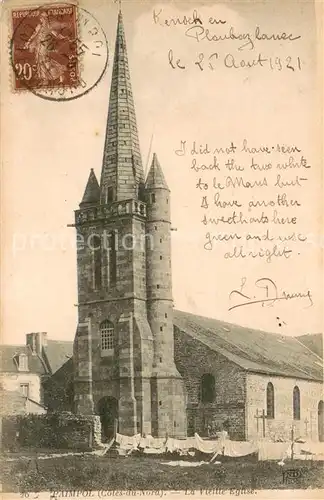 RÉPUBLIQUE FRANÇAISE
20c
POSTES
Kerroch en
Ploubazlanec
le 25 Août 1921
I did not have seen
back the two white
to le Mans but
I have another
sweethearts here
green and use
all right.
photo-collection
PAIMPOL (Côtes-du-Nord). — La Vieille Eglise